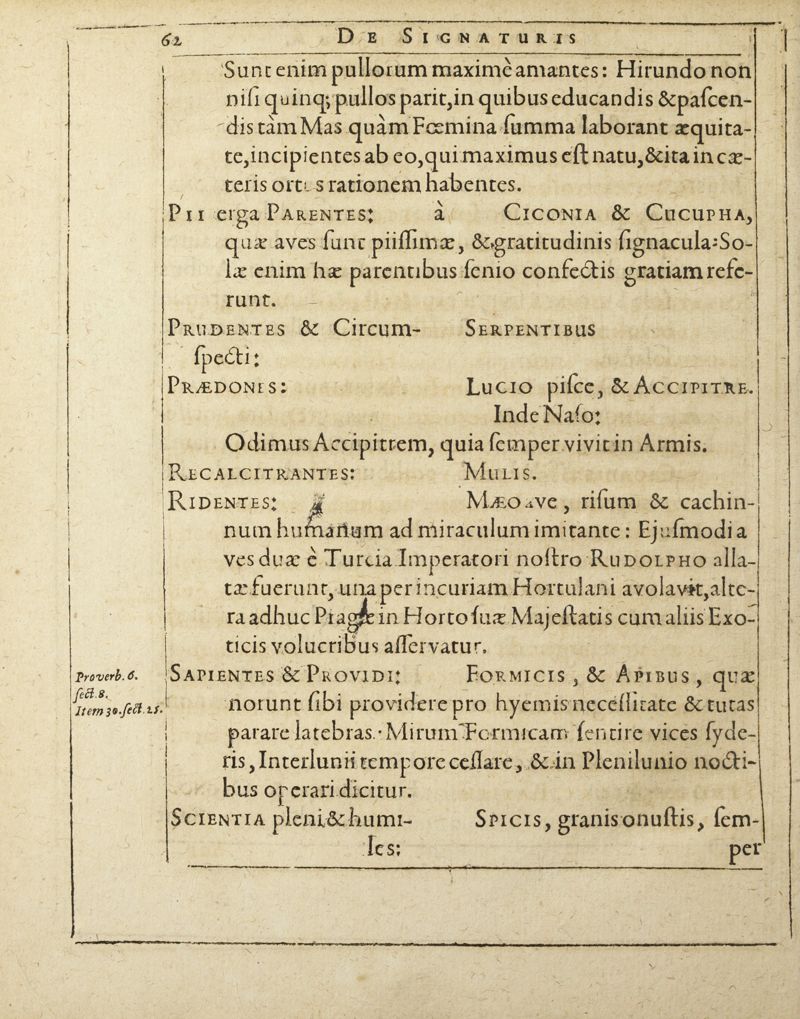 62 DE SIGNATURIS
Sunt enim pullorum maximè amantes: Hirundo non
nisi quinq; pullos parit, in quibus educandis & pascen-
dis tàm Mas quàm Fœmina summa laborant æquita-
te, incipientes ab eo, qui maximus est natu, & ita in cæ-
teris ortus rationem habentes.
PII erga PARENTES: à CICONIA & CUCUPHA,
quæ aves sunt piissimæ, & gratitudinis signacula: So-
læ enim hæ parentibus senio confectis gratiam refe-
runt.
PRUDENTES & Circum- SERPENTIBUS
specti:
PRÆDONES: LUCIO pisce, & ACCIPITRE.
Inde Naso:
Odimus Accipitrem, quia semper vivit in Armis.
RECALCITRANTES: MULIS.
RIDENTES: MÆO ave, risum & cachin-
num humanum ad miraculum imitante: Ejusmodi a
ves duæ è Turcia Imperatori nostro RUDOLPHO alla-
tæ fuerunt, una per incuriam Hortulani avolavit, alte-
ra adhuc Pragæ in Horto suæ Majestatis cum aliis Exo-
ticis volucribus asservatur.
Proverb. 6.
sect. 8.
Item 30. sect. 25.
SAPIENTES & PROVIDI: FORMICIS, & APIBUS, quæ
norunt sibi providere pro hyemis necessitate & tutas
parare latebras. Mirum Formicam sentire vices syde-
ris, Interlunii tempore cessare, & in Plenilunio nocti-
bus operari dicitur.
SCIENTIA pleni & humi- SPICIS, granis onustis, sem-
les: per